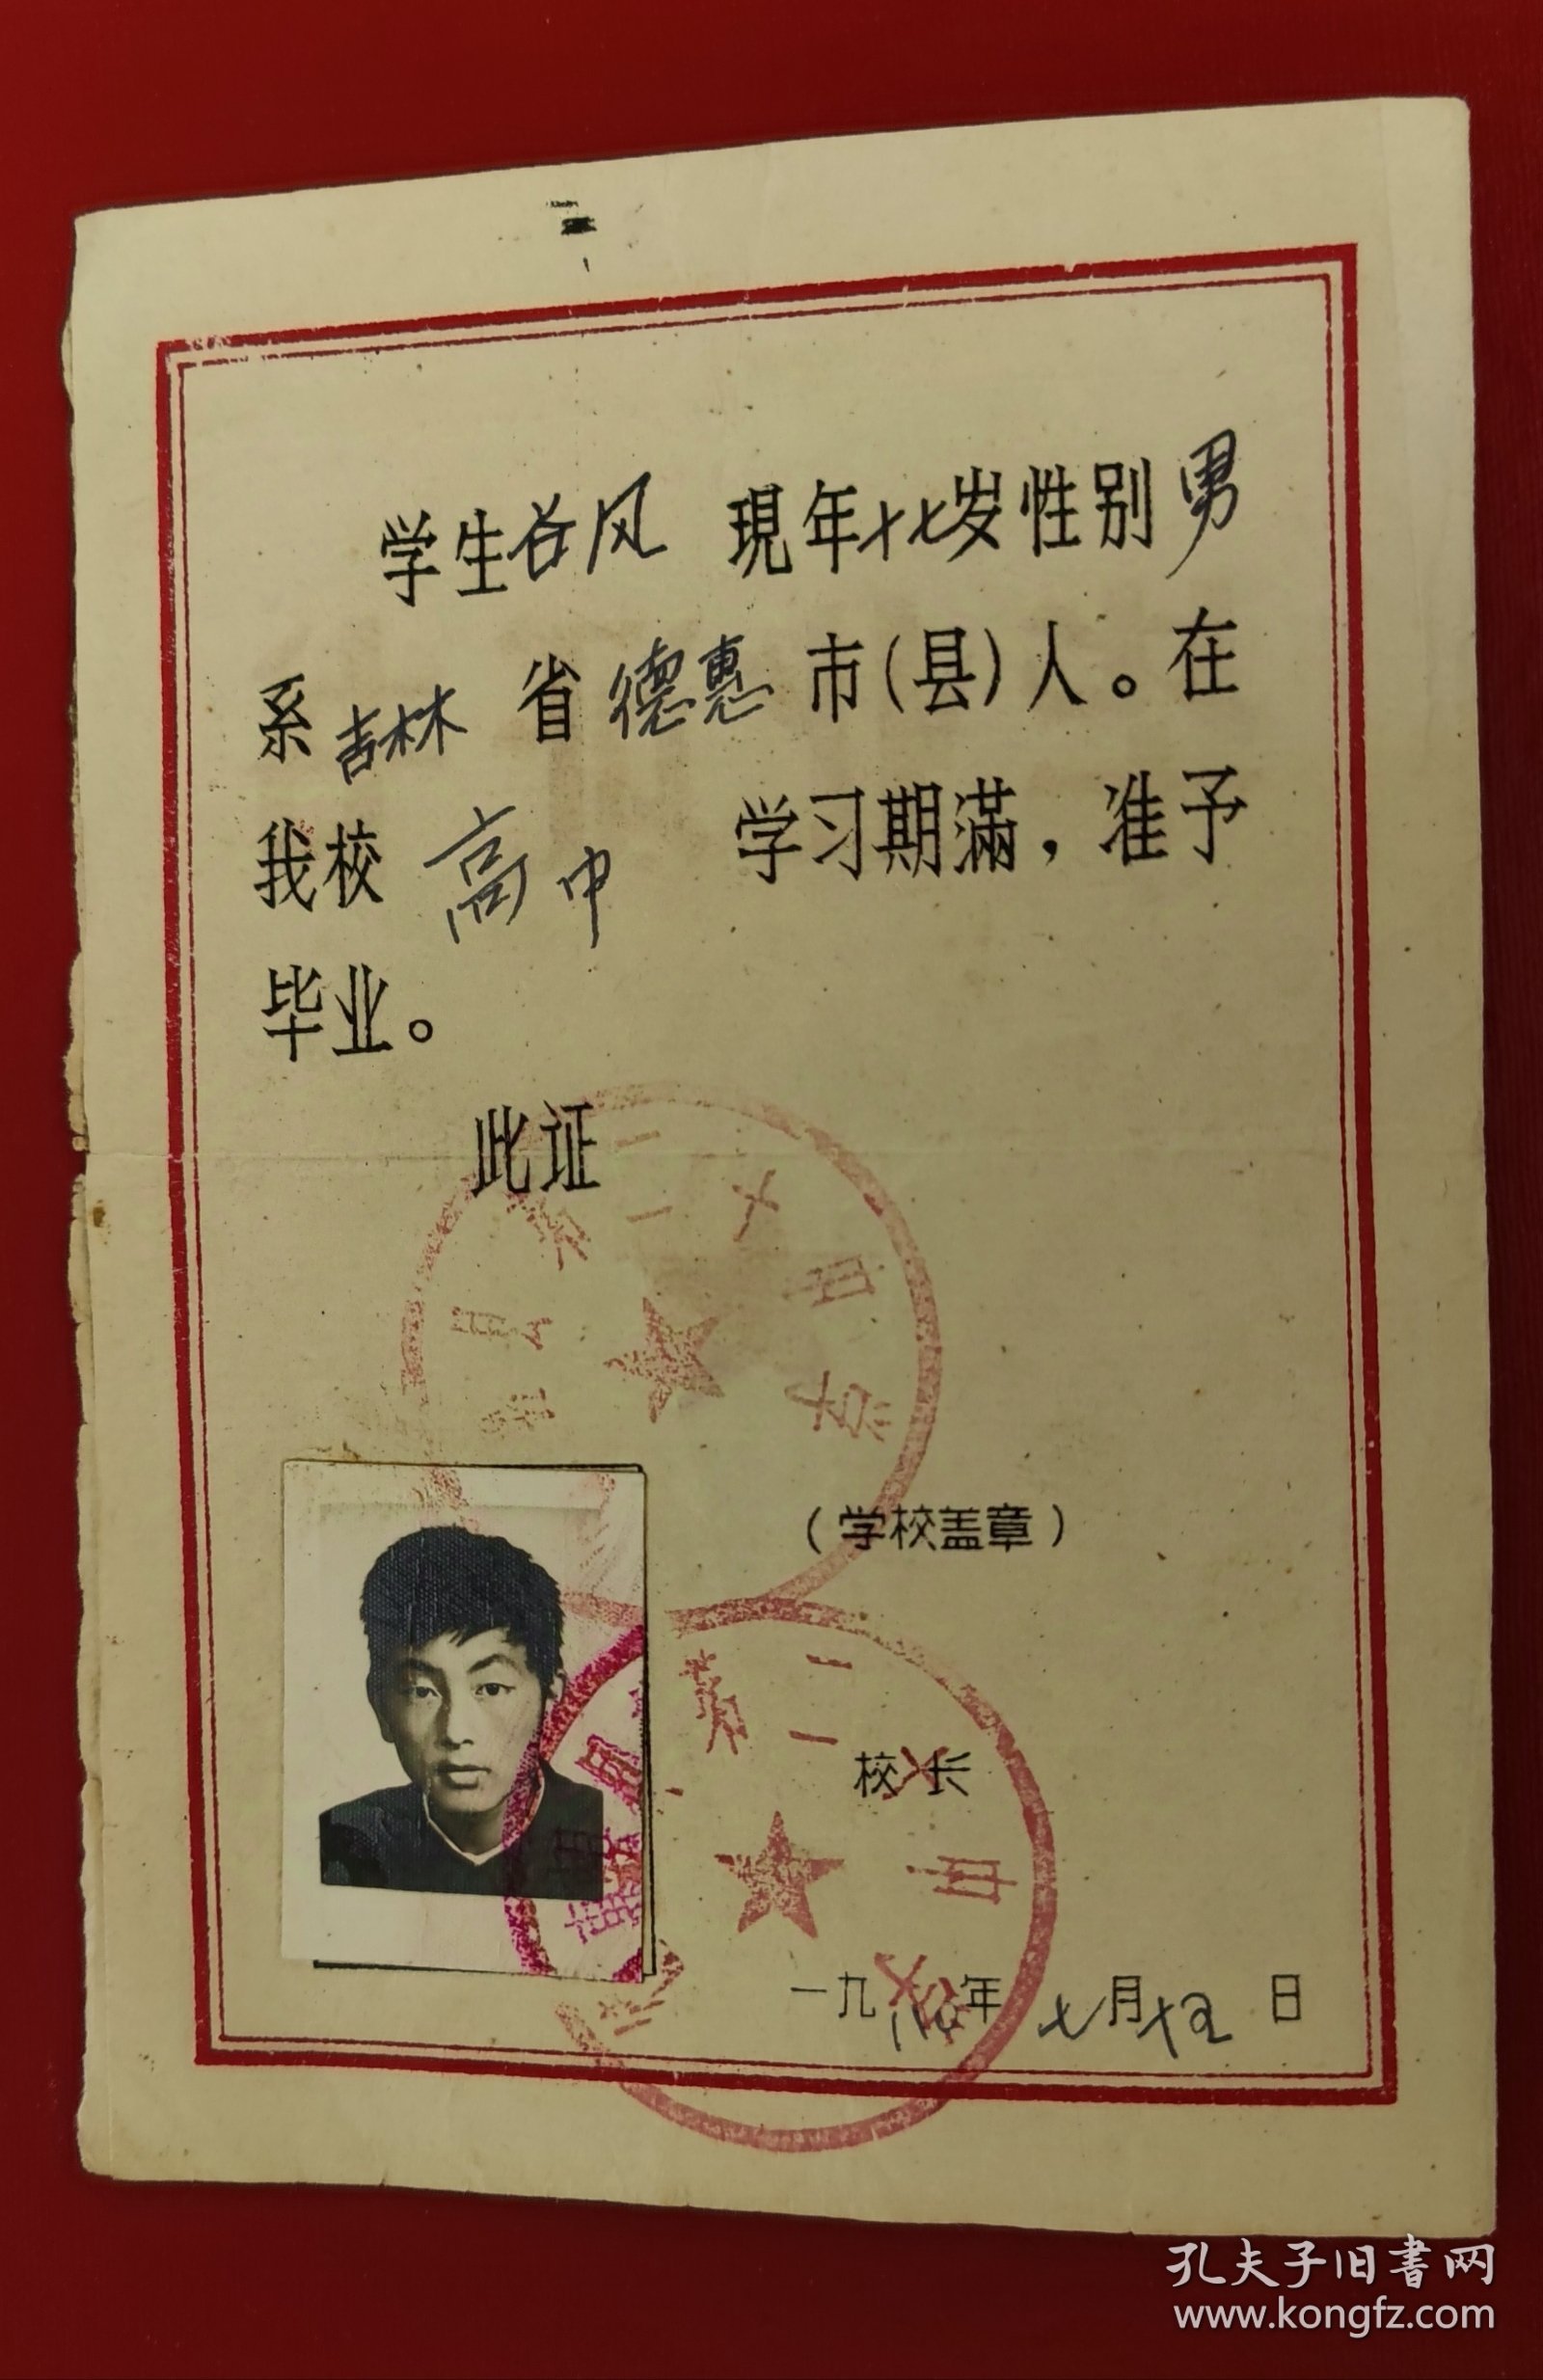 学生谷风 現年十七岁性别男
系吉林省德惠市(县)人。在
我校高中 学习期滿，准予
毕业。
此证
第二十中学
(学校盖章)
第二十中学
校长
一九 年七月十五日
孔夫子旧书网
www.kongfz.com